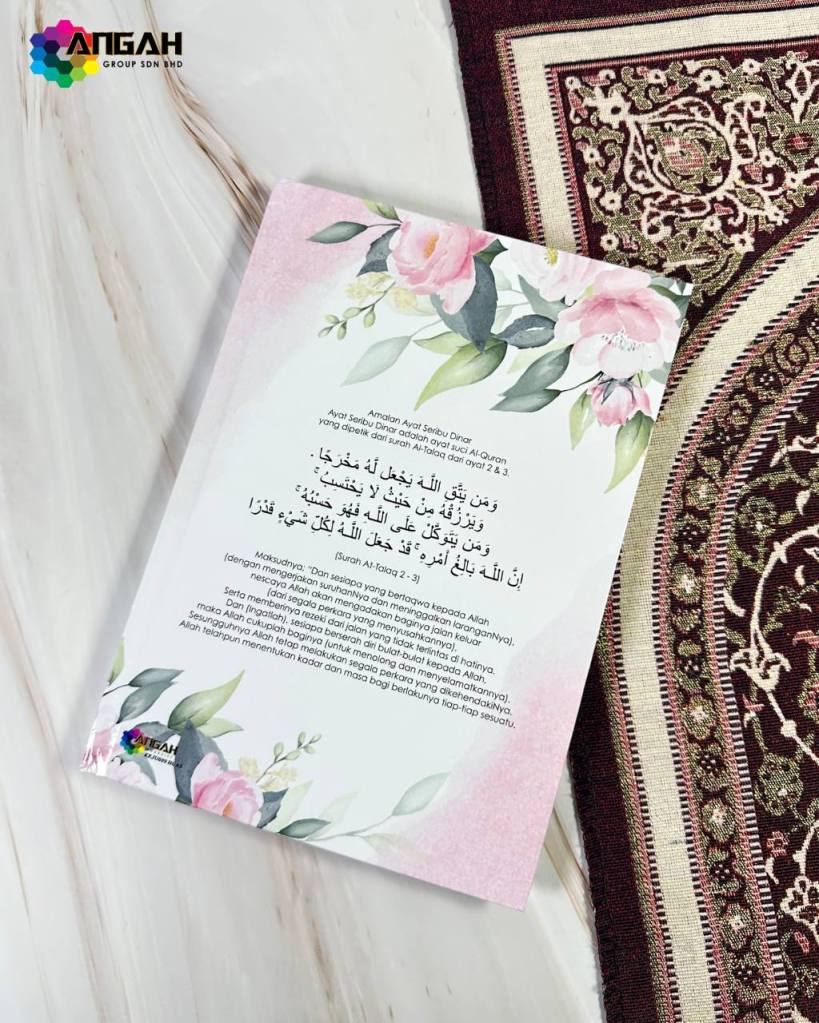 ANGAH
GROUP SDN BHD
Amalan Ayat Seribu Dinar
Ayat Seribu Dinar adalah ayat suci Al-Quran
yang dipetik dari surah At-Talaq dari ayat 2 & 3.
وَمَن يَتَّقِ اللَّـهَ يَجْعَل لَّهُ مَخْرَجًا .
وَيَرْزُقْهُ مِنْ حَيْثُ لَا يَحْتَسِبُ ۚ
وَمَن يَتَوَكَّلْ عَلَى اللَّـهِ فَهُوَ حَسْبُهُ ۚ
إِنَّ اللَّـهَ بَالِغُ أَمْرِهِ ۚ قَدْ جَعَلَ اللَّـهُ لِكُلِّ شَيْءٍ قَدْرًا
(Surah At-Talaq 2 - 3)
Maksudnya; "Dan sesiapa yang bertaqwa kepada Allah
(dengan mengerjakan suruhanNya dan meninggalkan laranganNya),
nescaya Allah akan mengadakan baginya jalan keluar
(dari segala perkara yang menyusahkannya),
Serta memberinya rezeki dari jalan yang tidak terlintas di hatinya.
Dan (Ingatlah), sesiapa berserah diri bulat-bulat kepada Allah,
maka Allah cukuplah baginya (untuk menolong dan menyelamatkannya).
Sesungguhnya Allah tetap melakukan segala perkara yang dikehendakiNya.
Allah telahpun menentukan kadar dan masa bagi berlakunya tiap-tiap sesuatu.
ANGAH